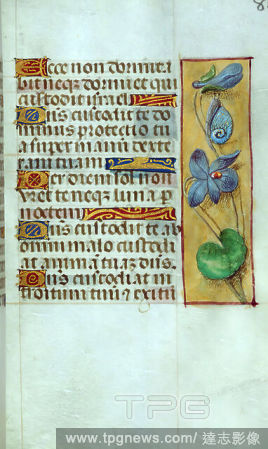 Ecce non dormita
bit neqz dormiet qui
custodit israel
Dns custodit te do
minus protectio tu
a super manū dexte
ram tuam
Per diem sol non
vret te neqz luna p
noctem
Dns custodit te ab
omni malo custodi
at animā tuā dns.
Dns custodiat in
troitum tuū z exitū
TPG
www.tpgnews.com/ 達志影像